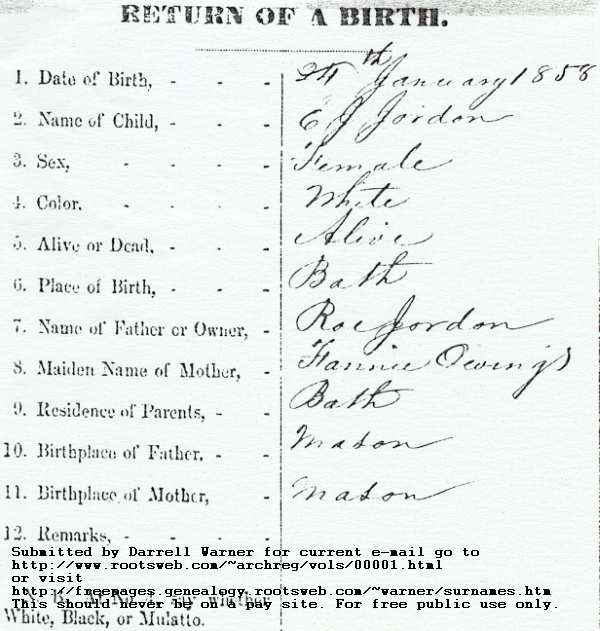 RETURN OF A BIRTH.
1. Date of Birth, - - - 24th January 1858
2. Name of Child, - - - E J Jordon
3. Sex, - - - - Female
4. Color. - - - - White
5. Alive or Dead, - - - Alive
6. Place of Birth, - - - Bath
7. Name of Father or Owner, - Roe Jordon
8. Maiden Name of Mother, - Fannie Owings
9. Residence of Parents, - - Bath
10. Birthplace of Father, - - Mason
11. Birthplace of Mother, - Mason
12. Remarks, - - - -
Submitted by Darrell Warner for current e-mail go to
http://www.rootsweb.com/~archreg/vols/00001.html
or visit
http://freepages.genealogy.rootsweb.com/~warner/surnames.htm
This should never be on a pay site. For free public use only.
White, Black, or Mulatto.